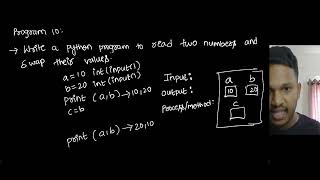 Program 10:
→ Write a Python program to read two numbers and
swap their values.
a=10 int(input())
b=20 int(input())
print (a,b) → 10,20
c=b
print (a,b) → 20,10
Input:
Output:
Process/method:
a b
10 20
c